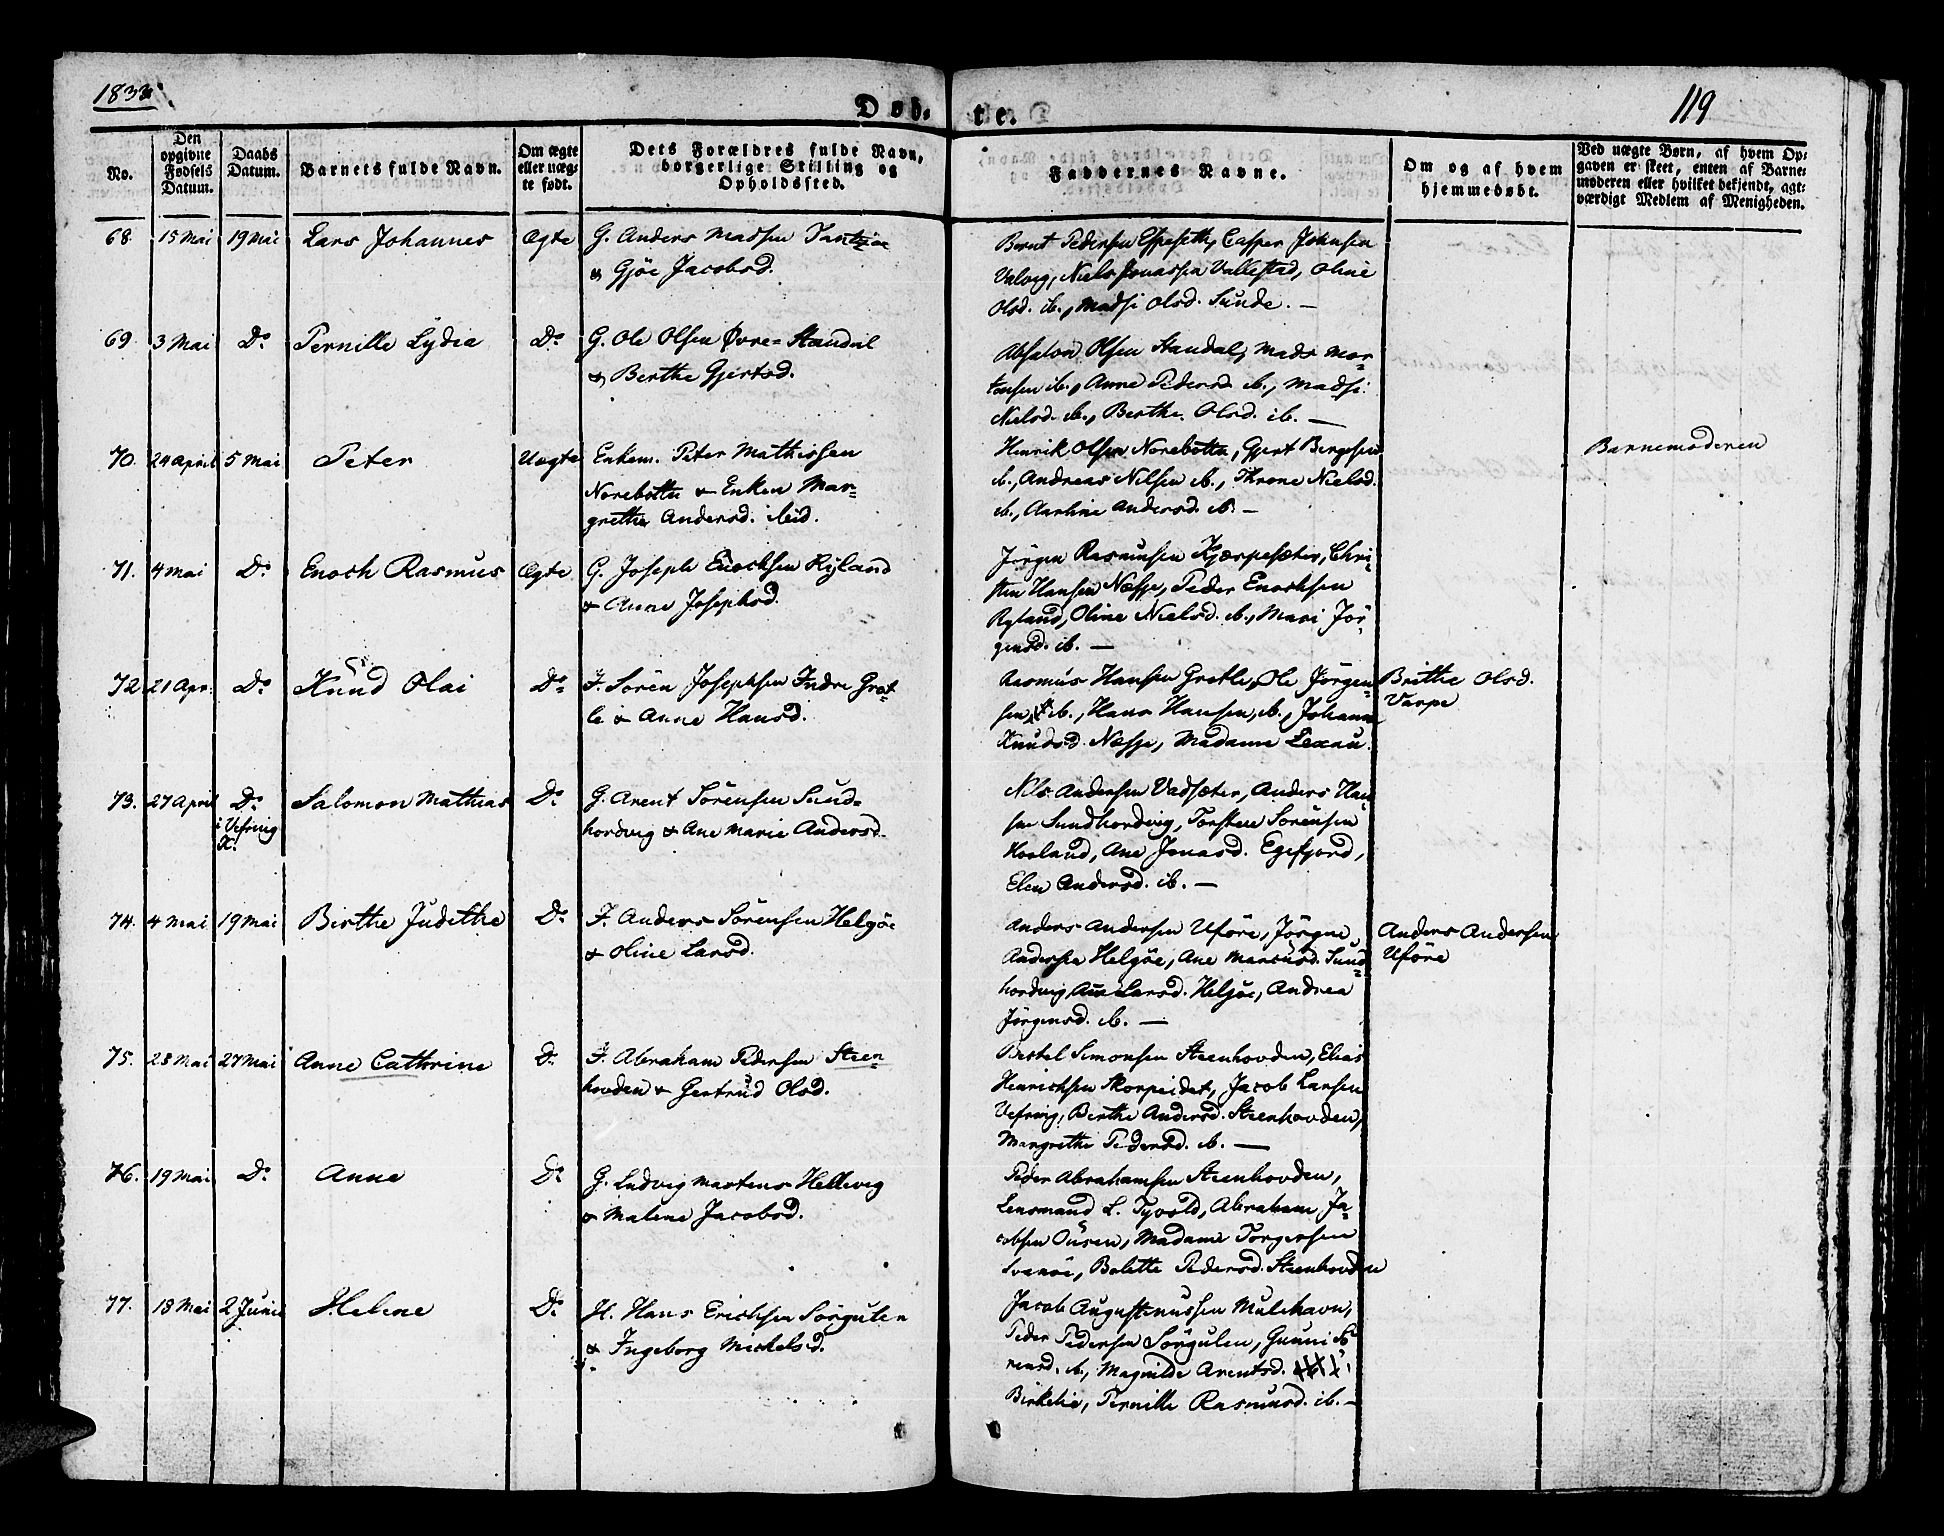 1833
Døb-
te.
119
No.
Den opgivne Fødsels Datum.
Daabs Datum.
Barnets fulde Navn.
Om ægte eller uægte født.
Dets Forældres fulde Navn, borgerlige Stilling og Opholdssted.
Faddernes Navne.
Om og af hvem hjemmedøbt.
Ved uægte Børn, af hvem Opgaven er skeet, enten af Barnemoderen eller hvilket bekjendt, agtværdigt Medlem af Menigheden.
68. 15 Mai 19 Mai Lars Johannes Ægte G. Anders Madsen
& Gjöe Jacobsd.
Bernt Pedersen Espeseth, Casper Johnsen
Valvig, Niels Jonassen Vallestad, Oline
Olsd. ib., Madsi Olsd. Sunde. —
69 3 Mai Do Pernille Lydia Do G. Ole Olsen Övre= Standal
& Berthe Gjertsd.
Absalon Olsen Standal, Mads Mor=
tensen ib., Anne Pedersd. ib., Madsi
Nielsd. ib., Berthe Olsd. ib. —
70. 24 April 5 Mai Peter Uægte Enkem. Peter Mathissen
Norebotten & Enken Mar=
grethe Andersd. ibid.
Henrik Olsen Norebotten, Gjert Bergesen
ib., Andreas Nilsen ib., Throne Nielsd.
ib., Anthine Andersd. ib. —
Barnemoderen
71. 4 Mai Do Enoch Rasmus Ægte G. Joseph Enochsen Ryland
& Anne Josephsd.
Jörgen Rasmussen Kjærpesæter, Chri=
sten Hansen Nesje, Peder Enochsen
Ryland, Oline Nielsd. ib., Mari Jör=
gensd. ib. —
72 21 Apr. Do Knud Olai Do I. Sören Josephsen Indre Gret=
le & Anne Hansd.
Rasmus Hansen Gretle, Ole Jörgen=
sen ib., Hans Hansen, ib., Johanne
Knudsd. Nesje, Madame Lexau.
Brithe Olsd.
Varpe
73. 27 April Do Salomon Mathias Do G. Arent Sörensen Sund=
i Vefring
K.
hordvig & Ane Marie Andersd.
Nils Andersen Vadsæter, Anders Han=
sen Sundhordvig, Torsten Sörensen
Hovland, Ane Jonasd. Egefjord,
Elen Andersd. ib. —
74. 4 Mai 19 Mai Birthe Judithe Do I. Anders Sörensen Helgöe
& Oline Larsd.
Anders Andersen Uföre, Jörgen
Andersen Helgöe, Ane Marcusd. Sund=
hordvig, Ane Larsd. Helgöe, Andrea
Jörgensd. ib. —
Anders Andersen
Uföre
75. 23 Mai 27 Mai Anne Cathrine Do I. Abraham Pedersen Steen=
hovden & Gertrud Olsd.
Bertel Simonsen Steenhovden, Elias
Henrichsen Skorpeidet, Jacob Larsen
Vefring, Berthe Andersd. Steenhovden,
Margrethe Pedersd. ib. —
76. 19 Mai Do Anne Do G. Ludvig Martens Hellevig
& Malene Jacobsd.
Peder Abrahamsen Steenhovden,
Lensmand L. Tyvold, Abraham Ja=
cobsen Ousen, Madame Torgersen
Svanöe, Bolette Pedersd. Steenhovden
77. 18 Mai 2 Juni Helene Do H. Hans Erichsen Sörgulen
& Ingeborg Michelsd.
Jacob Augustinussen Mulehavn,
Peder Pedersen Sörgulen, Gunni Sö=
rensd. ib., Magnilde Arentsd.
Birkelie, Pernille Rasmusd. ib. —